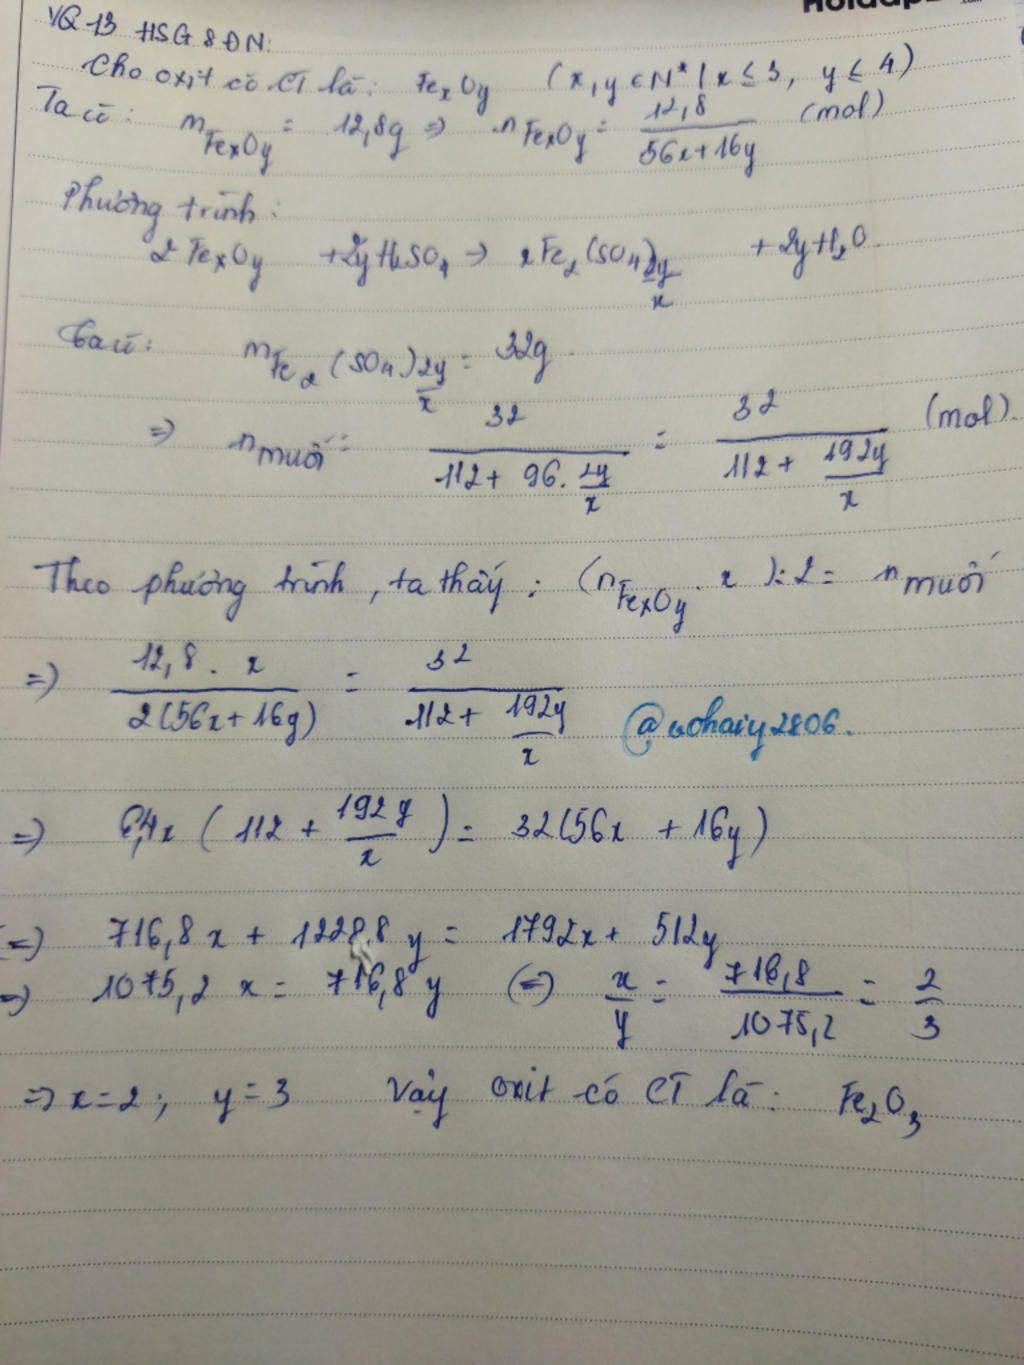 VQ 13 HSG 8 ĐN:
Cho oxit có CT là: FexOy (x, y ∈ N* / x ≤ 3, y ≤ 4)
Ta có: mFexOy = 12,8g => nFexOy = 12,8 / (56x + 16y) (mol)
Phương trình:
2FexOy + 2yH2SO4 -> xFe2(SO4)2y/x + 2yH2O
Ta có: mFe2(SO4)2y/x = 32g
=> nmuối = 32 / (112 + 96.2y/x) = 32 / (112 + 192y/x) (mol)
Theo phương trình, ta thấy: (nFexOy . x) : 2 = nmuối
=> 12,8 . x / 2(56x + 16y) = 32 / (112 + 192y/x)
@vohaiy2806.
=> 6,4x (112 + 192y/x) = 32(56x + 16y)
(=) 716,8x + 1228,8y = 1792x + 512y
=> 1075,2x = 716,8y (=) x/y = 716,8/1075,2 = 2/3
=> x = 2; y = 3 Vậy oxit có CT là: Fe2O3